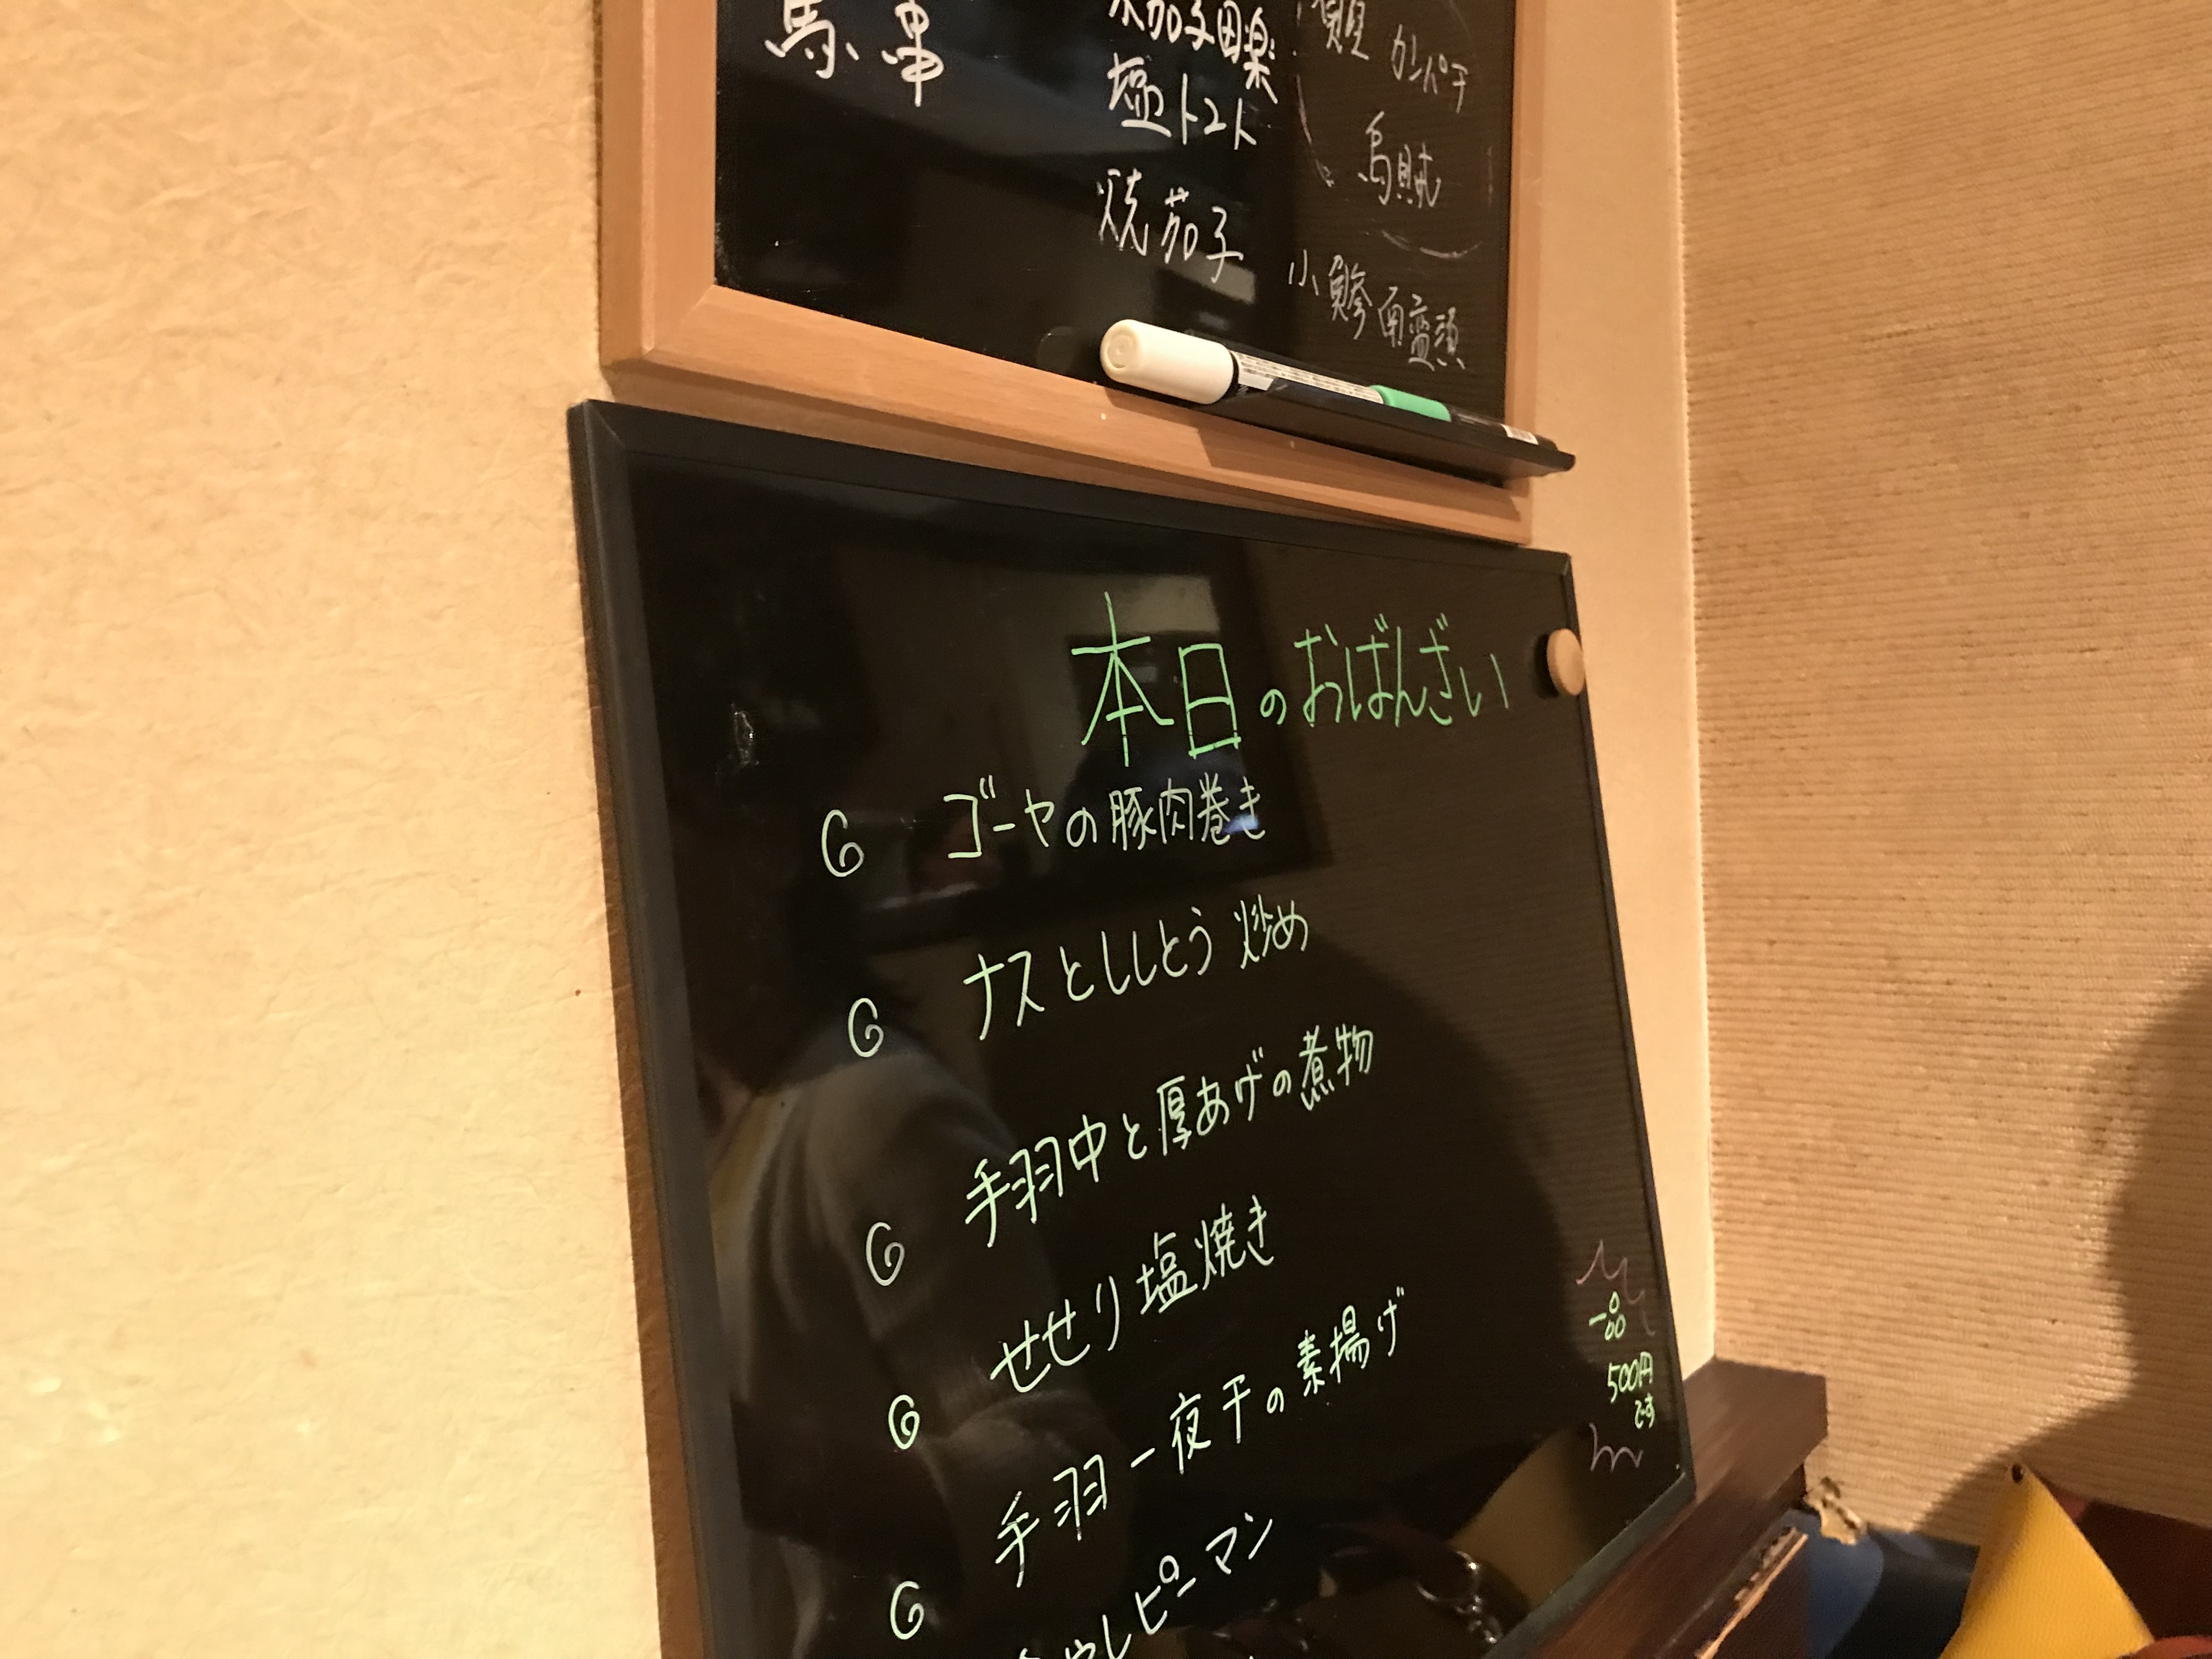 馬串
水茄子田楽
塩トマト
焼茄子
カンパチ
烏賊
小鯵南蛮漬
本日のおばんざい
ゴーヤの豚肉巻き
ナスとししとう炒め
手羽中と厚あげの煮物
せせり塩焼き
手羽一夜干の素揚げ
やしピーマン
一品
500円
です